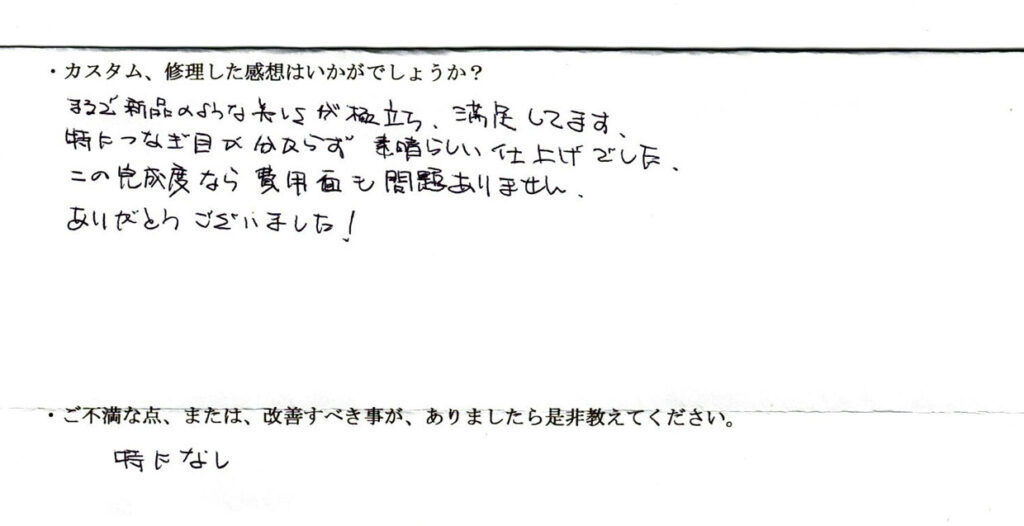 ・カスタム、修理した感想はいかがでしょうか？
まるで新品のような美しさが極立ち、満足してます、
特につなぎ目が分からず素晴らしい仕上げでした、
この完成度なら費用面も問題ありません、
ありがとうございました！
・ご不満な点、または、改善すべき事が、ありましたら是非教えてください。
特になし